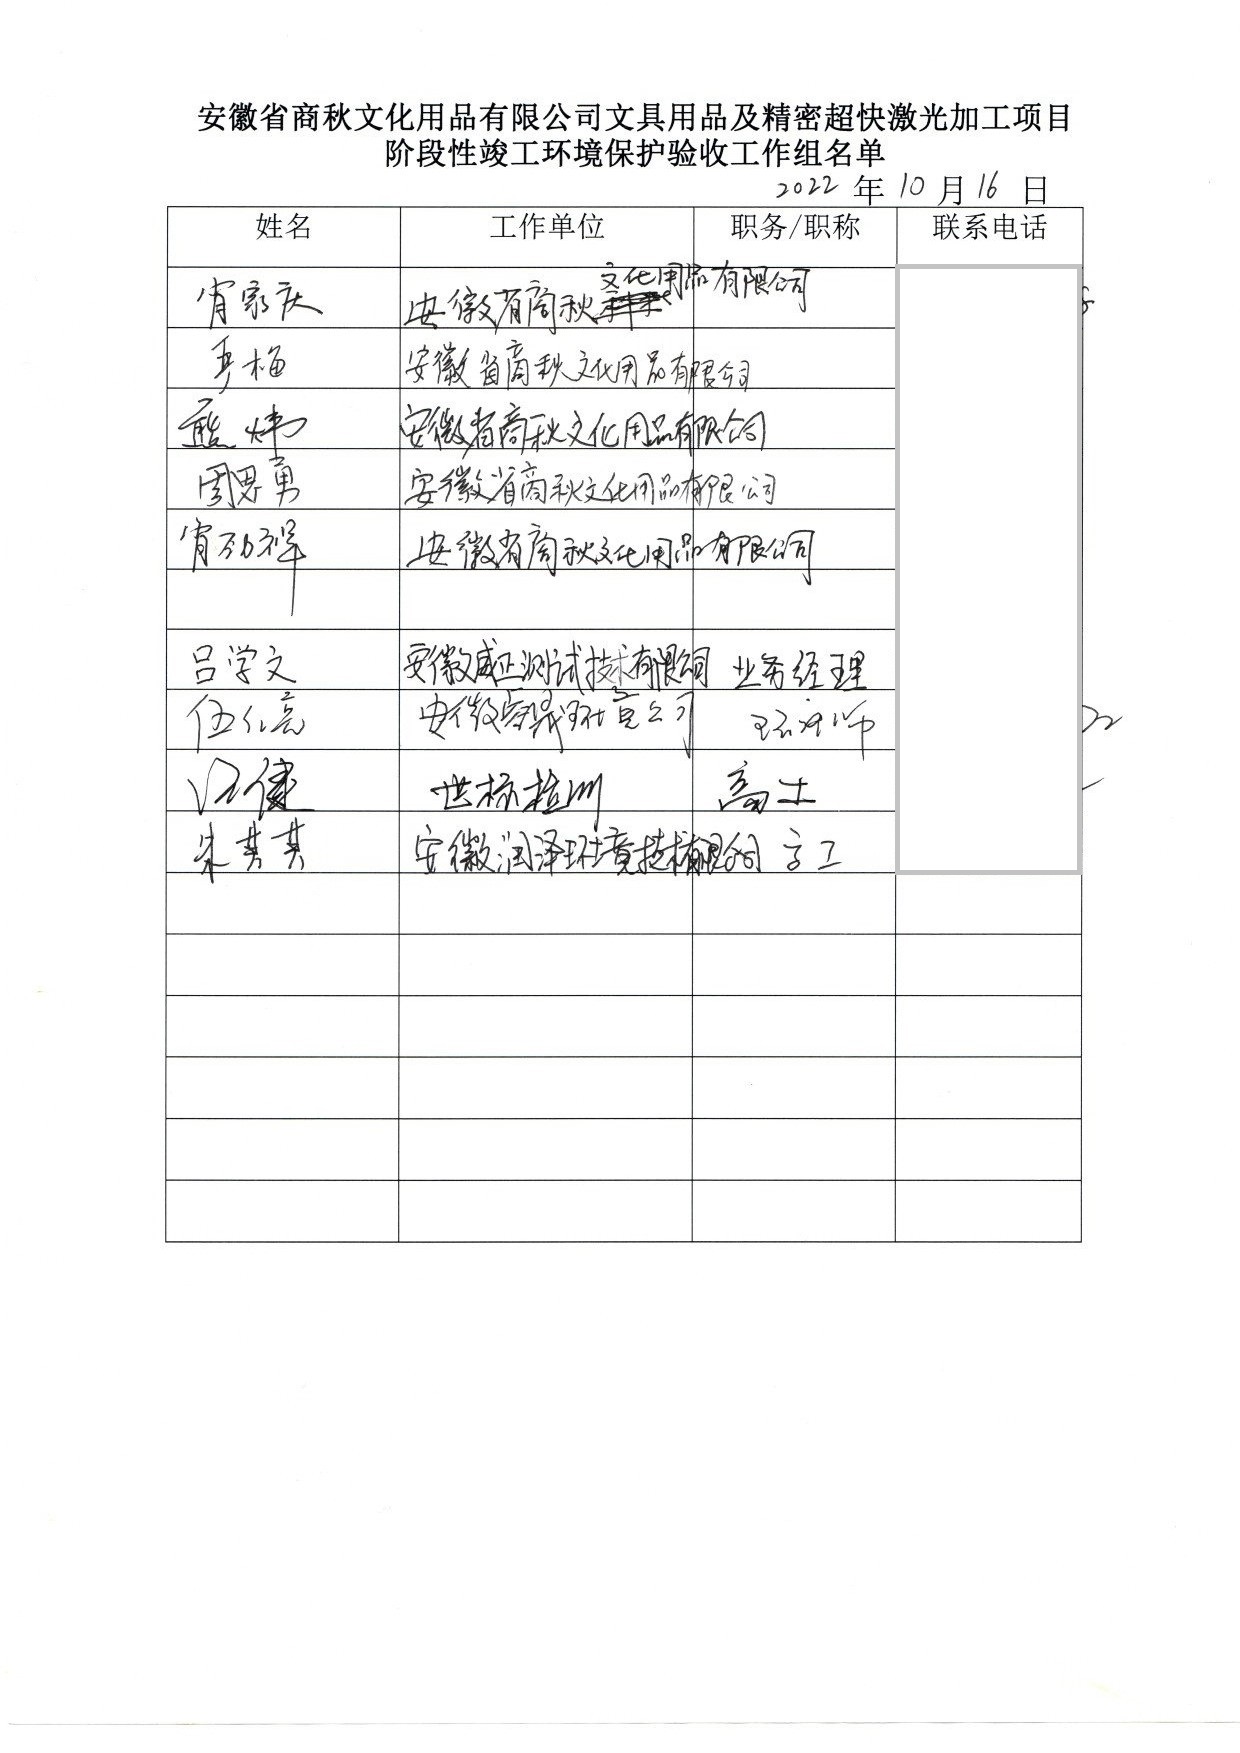 安徽省商秋文化用品有限公司文具用品及精密超快激光加工项目
阶段性竣工环境保护验收工作组名单
2022 年 10 月 16 日
姓名 工作单位 职务/职称 联系电话
肖家庆 安徽省商秋文化用品有限公司
李梅 安徽省商秋文化用品有限公司
熊炜 安徽省商秋文化用品有限公司
周思勇 安徽省商秋文化用品有限公司
肖劲祥 安徽省商秋文化用品有限公司
吕学文 安徽威正测试技术有限公司 业务经理
伍仁亮 安徽睿晟环境公司 环评师
汪健 世标检测 高工
朱其其 安徽润泽环境技术有限公司 高工